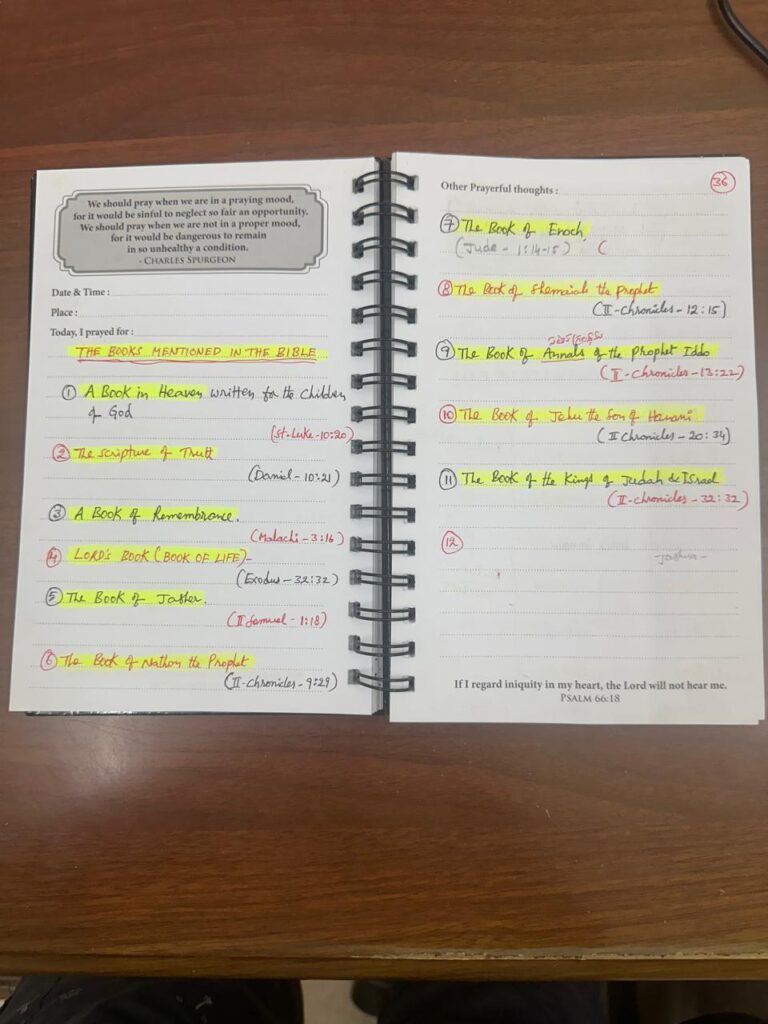 We should pray when we are in a praying mood,
for it would be sinful to neglect so fair an opportunity.
We should pray when we are not in a proper mood,
for it would be dangerous to remain
in so unhealthy a condition.
- CHARLES SPURGEON
Date & Time :
Place :
Today, I prayed for :
THE BOOKS MENTIONED IN THE BIBLE
① A Book in Heaven written for the children
of God
(St. Luke - 10:20)
② The Scripture of Truth
(Daniel - 10:21)
③ A Book of Remembrance.
(Malachi - 3:16)
④ LORD'S BOOK (BOOK OF LIFE)
(Exodus - 32:32)
⑤ The Book of Jasher.
(II Samuel - 1:18)
⑥ The Book of Nathan the Prophet
(II - Chronicles - 9:29)
Other Prayerful thoughts :
36
⑦ The Book of Enoch
(Jude - 1:14-15) (
⑧ The Book of Shemaiah the Prophet
(II - Chronicles - 12:15)
⑨ The Book of Annals of the Prophet Iddo
(II - Chronicles - 13:22)
⑩ The Book of Jehu the Son of Hanani
(II Chronicles - 20:34)
⑪ The Book of the Kings of Judah & Israel
(II - Chronicles - 32:32)
⑫
Joshua -
If I regard iniquity in my heart, the Lord will not hear me.
PSALM 66:18